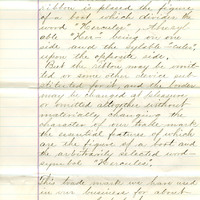 ribbon is placed the figure
of a boot, which divides the
word "Hercules," the syll-
able "Her" being on one
side and the syllable "cules"
upon the opposite side.
But the ribbon may be omit-
ted or some other device sub-
stituted for it, and the border
may be changed at pleasure
or omitted altogether without
materially changing the
character of our trade mark
the essential feature of which
are the figure of a boot and
the arbitrarily selected word-
symbol "Hercules".
This trade mark we have used
in our business for about